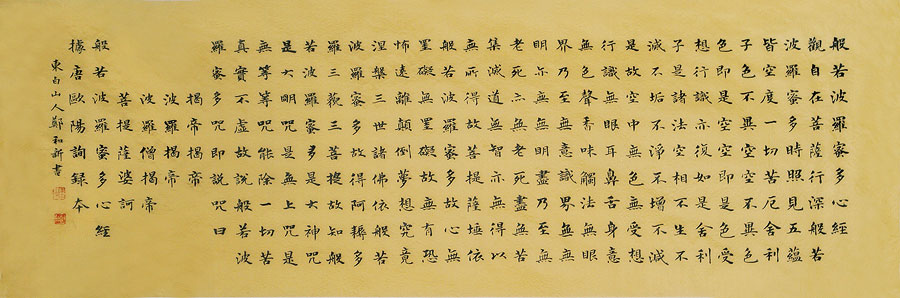 般若波羅蜜多心經
觀自在菩薩行深般若
波羅蜜多時照見五蘊
皆空度一切苦厄舍利
子色不異空空不異色
色即是空空即是色受
想行識亦復如是舍利
子是諸法空相不生不
滅不垢不淨不增不減
是故空中無色無受想
行識無眼耳鼻舌身意
無色聲香味觸法無眼
界乃至無意識界無無
明亦無無明盡乃至無
老死亦無老死盡無苦
集滅道無智亦無得以
無所得故菩提薩埵依
般若波羅蜜多故心無
罣礙無罣礙故無有恐
怖遠離顛倒夢想究竟
涅槃三世諸佛依般若
波羅蜜多故得阿耨多
羅三藐三菩提故知般
若波羅蜜多是大神咒
是大明咒是無上咒是
無等等咒能除一切苦
真實不虛故說般若波
羅蜜多咒即說咒曰
揭帝揭帝
波羅揭帝
波羅僧揭帝
菩提薩婆訶
般若波羅蜜多心經
據唐歐陽詢録本
東白山人鄭和新書